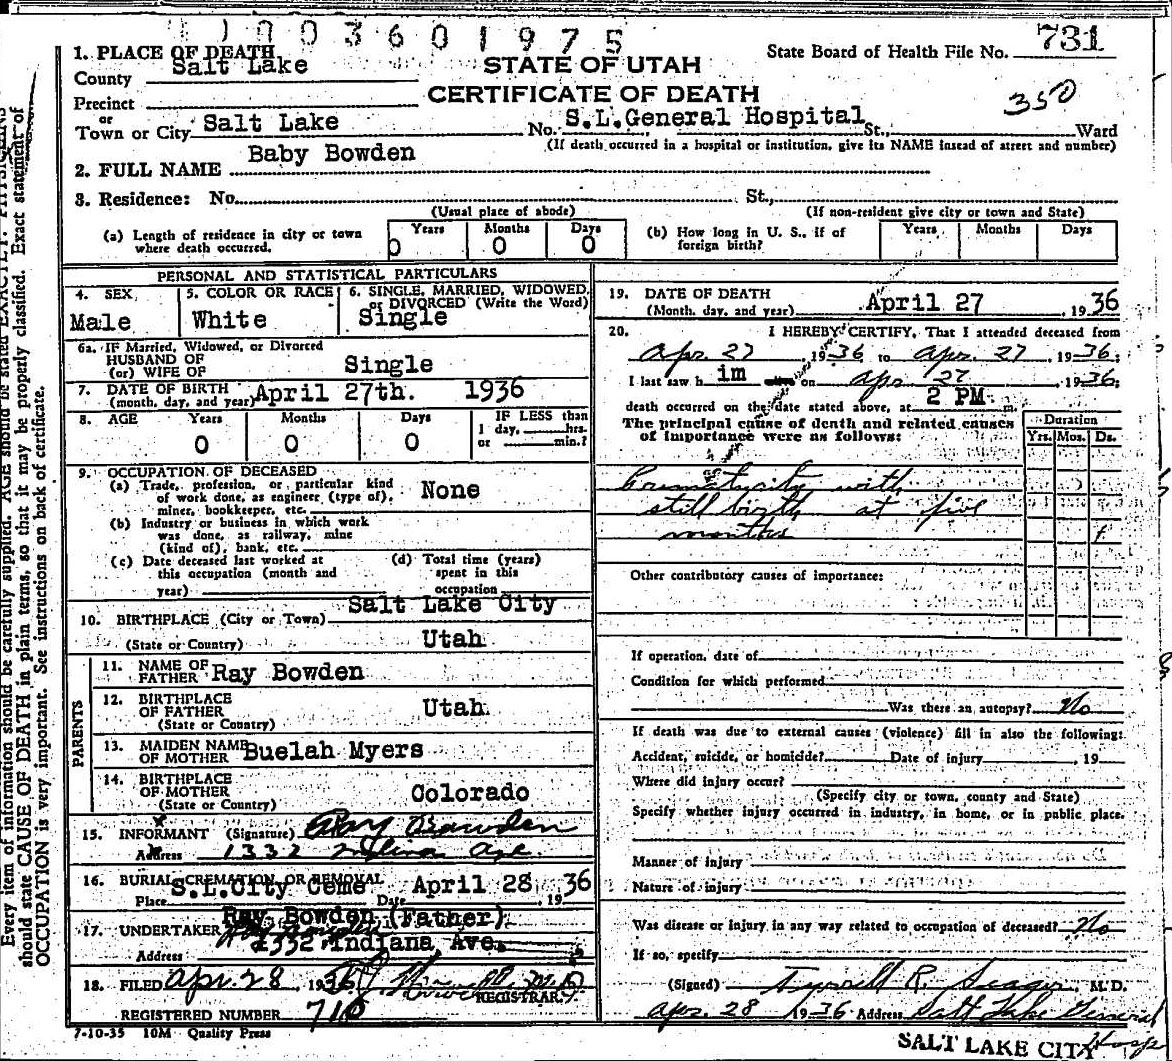 1003601975
1. PLACE OF DEATH
State Board of Health File No. 731
County Salt Lake
STATE OF UTAH
Precinct
CERTIFICATE OF DEATH
350
or
Town or City Salt Lake No. S.L.General Hospital St., Ward
(If death occurred in a hospital or institution, give its NAME instead of street and number)
2. FULL NAME Baby Bowden
3. Residence: No. St.,
(Usual place of abode) (If non-resident give city or town and State)
(a) Length of residence in city or town where death occurred. Years 0 Months 0 Days 0
(b) How long in U. S., if of foreign birth? Years Months Days
PERSONAL AND STATISTICAL PARTICULARS
4. SEX Male
5. COLOR OR RACE White
6. SINGLE, MARRIED, WIDOWED, or DIVORCED (Write the Word) Single
6a. IF Married, Widowed, or Divorced
HUSBAND OF
(or) WIFE OF Single
7. DATE OF BIRTH
(month, day, and year) April 27th. 1936
8. AGE Years 0 Months 0 Days 0
IF LESS than
1 day, hrs.
or min.?
9. OCCUPATION OF DECEASED
(a) Trade, profession, or particular kind
of work done, as engineer (type of),
miner, bookkeeper, etc. None
(b) Industry or business in which work
was done, as railway, mine
(kind of), bank, etc.
(c) Date deceased last worked at
this occupation (month and
year)
(d) Total time (years)
spent in this
occupation
10. BIRTHPLACE (City or Town) Salt Lake City
(State or Country) Utah
PARENTS
11. NAME OF
FATHER Ray Bowden
12. BIRTHPLACE
OF FATHER
(State or Country) Utah
13. MAIDEN NAME
OF MOTHER Buelah Myers
14. BIRTHPLACE
OF MOTHER
(State or Country) Colorado
15. INFORMANT (Signature) Ray Bowden
Address 1332 Indiana Ave.
16. BURIAL, CREMATION OR REMOVAL
Place S.L.City Ceme Date April 28 1936
17. UNDERTAKER Ray Bowden (Father)
Ray Bowden
Address 1332 Indiana Ave.
18. FILED Apr. 28, 1936
REGISTRAR
REGISTERED NUMBER 710
7-10-35 10M Quality Press
19. DATE OF DEATH
(Month, day, and year) April 27, 1936
20. I HEREBY CERTIFY, That I attended deceased from
Apr. 27, 1936 to Apr. 27, 1936;
I last saw him on Apr 27, 1936;
death occurred on the date stated above, at 2 PM m.
The principal cause of death and related causes
of importance were as follows:
Duration
Yrs. Mos. Ds.
still birth at five
months
Other contributory causes of importance:
If operation, date of
Condition for which performed
Was there an autopsy? No
If death was due to external causes (violence) fill in also the following:
Accident, suicide, or homicide? Date of injury, 19
Where did injury occur?
(Specify city or town, county and State)
Specify whether injury occurred in industry, in home, or in public place.
Manner of injury
Nature of injury
Was disease or injury in any way related to occupation of deceased? No
If so, specify
(Signed) Tyrrell R. Seager, M.D.
Apr. 28 1936 Address Salt Lake General
Hosp
SALT LAKE CITY
Every item of information should be carefully supplied. AGE should be stated EXACTLY. PHYSICIANS
should state CAUSE OF DEATH in plain terms, so that it may be properly classified. Exact statement of
OCCUPATION is very important. See instructions on back of certificate.